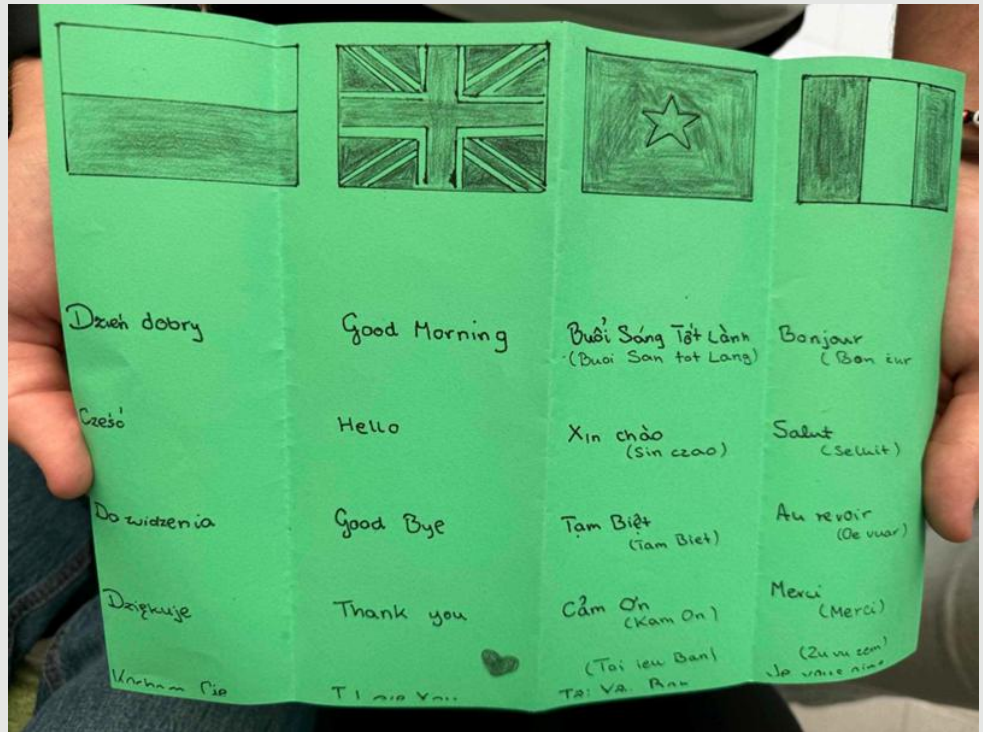 Dzień dobry
Cześć
Do widzenia
Dziękuje
Kocham Cię
Good Morning
Hello
Good Bye
Thank you
Buổi Sáng Tốt Lành
(Buoi San tot Lang)
Xin chào
(Sin czao)
Tạm Biệt
(Tam Biet)
Cảm Ơn
(Kam On)
(Toi ieu Ban)
Bonjour
(Bon żur
Salut
(Seluit)
Au revoir
(Oe vuar)
Merci
(Merci)
(Zu vu zem)
Je vous aime